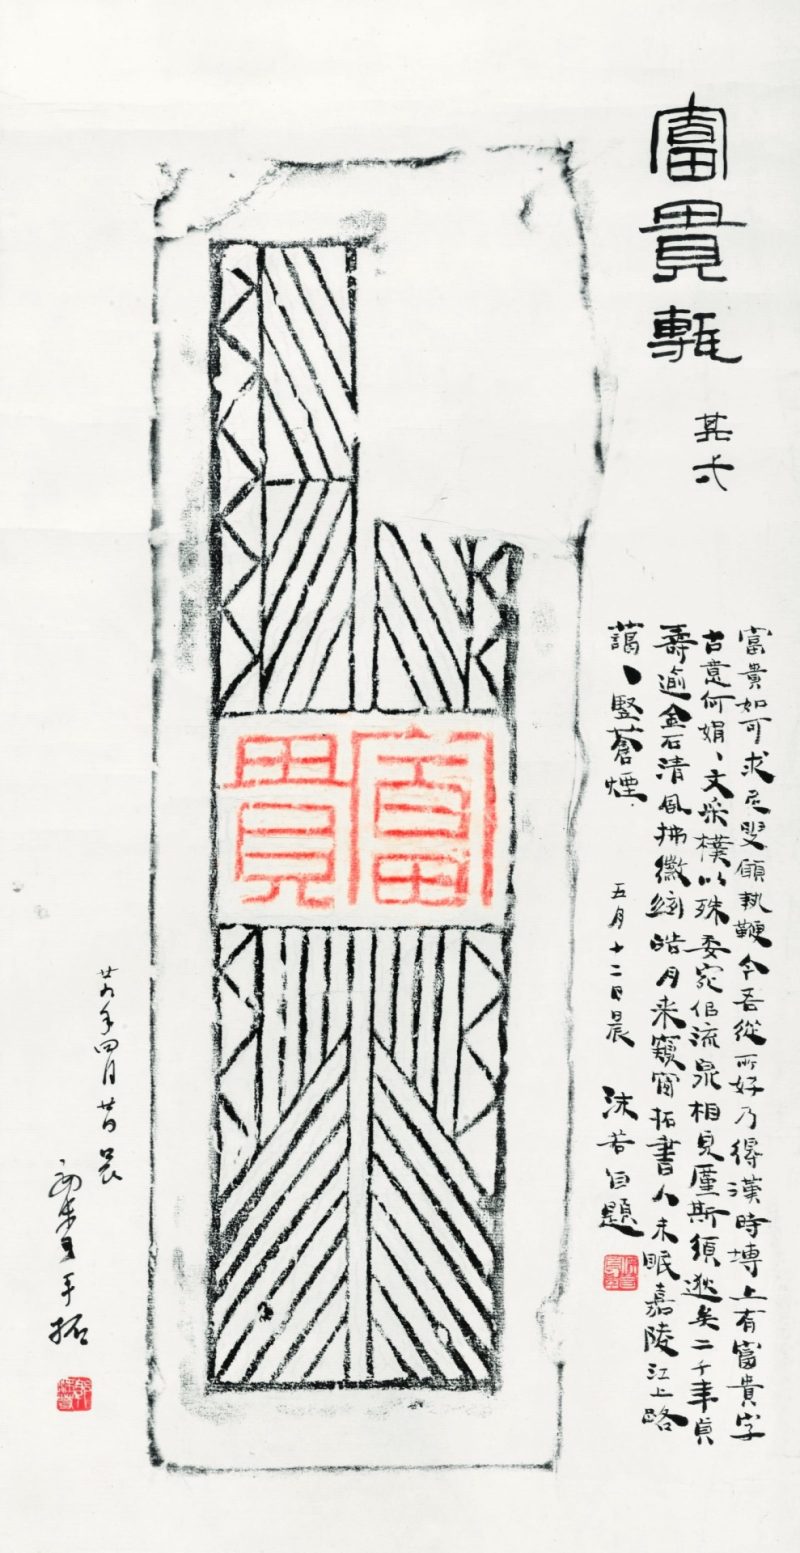 富貴甎
其弍
富貴如可求尼叟願執鞭今吾從所好乃得漢時塼上有富貴字
古意何娟〻文采樸以殊委宛佀流泉相見廑斯須逖矣二千年貞
壽逾金石清風拂徽絃皓月来窺窗拓書人未眠嘉陵江上路
藹〻豎蒼煙
五月十二日晨 沫若自題
富貴
廿九年四月 晨
郭沫若手拓